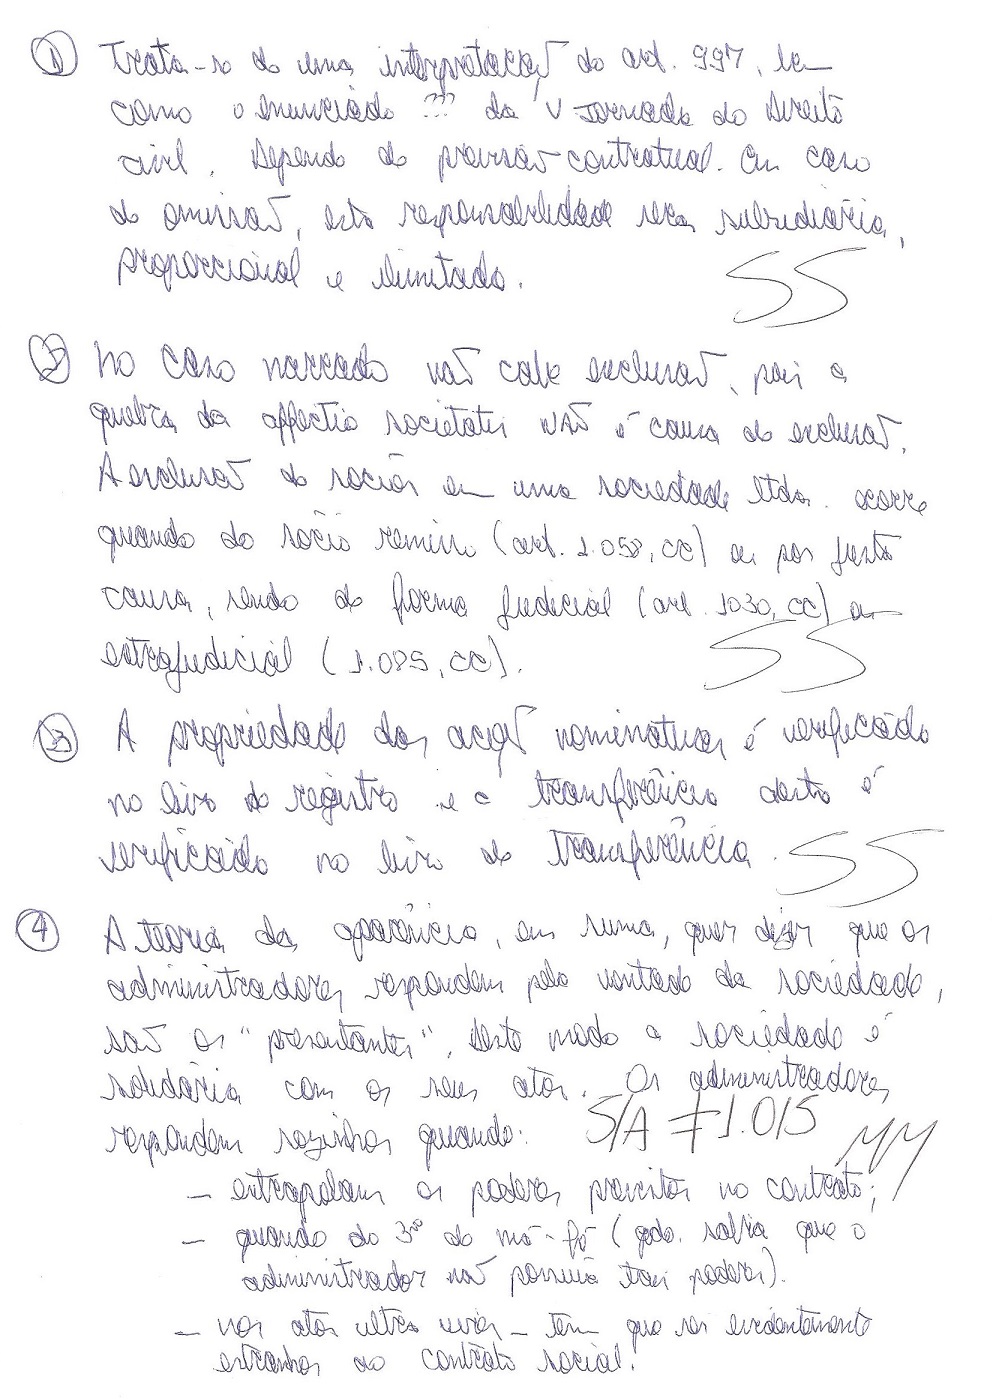 ① Trata-se de uma interpretação do art. 997, bem
como o enunciado ??? da V Jornada de Direito
Civil. Depende de previsão contratual. Em caso
de omissão, esta responsabilidade será subsidiária,
proporcional e ilimitada.
SS
② No caso narrado não cabe exclusão, pois a
quebra da affectio societatis NÃO é causa de exclusão.
A exclusão de sócios em uma sociedade ltda. ocorre
quando do sócio remisso (art. 1.058, CC) ou por justa
causa, sendo de forma judicial (art. 1030, CC) ou
extrajudicial (1.085, CC).
SS
③ A propriedade das ações nominativas é verificada
no livro de registro e a transferência desta é
verificada no livro de transferência.
SS
④ A teoria da aparência, em suma, quer dizer que os
administradores respondem pela vontade da sociedade,
são os "presentantes". Deste modo a sociedade é
solidária com os seus atos. Os administradores
respondem sozinhos quando:
S/A ≠ 1.015
MM
– extrapolam os poderes previstos no contrato;
– quando do 3ºˢ de má-fé (qdo. sabia que o
administrador não possuía tais poderes).
– nos atos ultra vires – tem que ser evidentemente
estranhos ao contrato social.